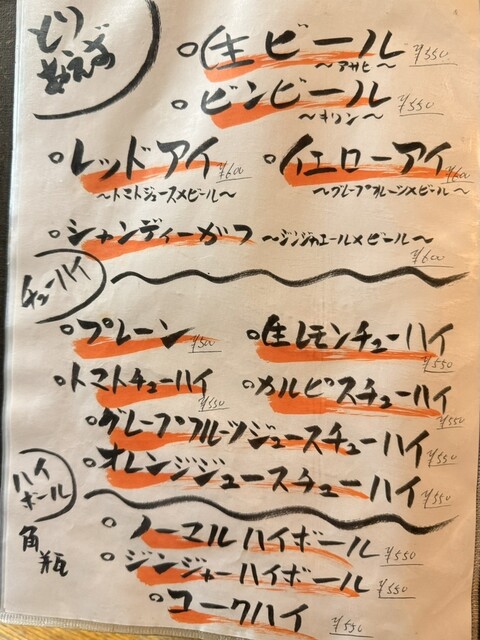 とりあえず
○生ビール ¥550
～アサヒ～
○ビンビール ¥550
～キリン～
○レッドアイ ¥600 ○イエローアイ ¥600
～トマトジュース×ビール～ ～グレープフルーツ×ビール～
○シャンディーガフ ～ジンジャエール×ビール～ ¥600
チューハイ
○プレーン ¥500 ○生レモンチューハイ ¥550
○トマトチューハイ ¥550 ○カルピスチューハイ ¥550
○グレープフルーツジュースチューハイ ¥550
○オレンジジュースチューハイ ¥550
ハイボール
角瓶
○ノーマルハイボール ¥550
○ジンジャーハイボール ¥550
○コークハイ ¥550